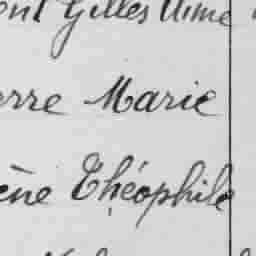 ont Gilles Aimé
erre Marie
ène Théophile